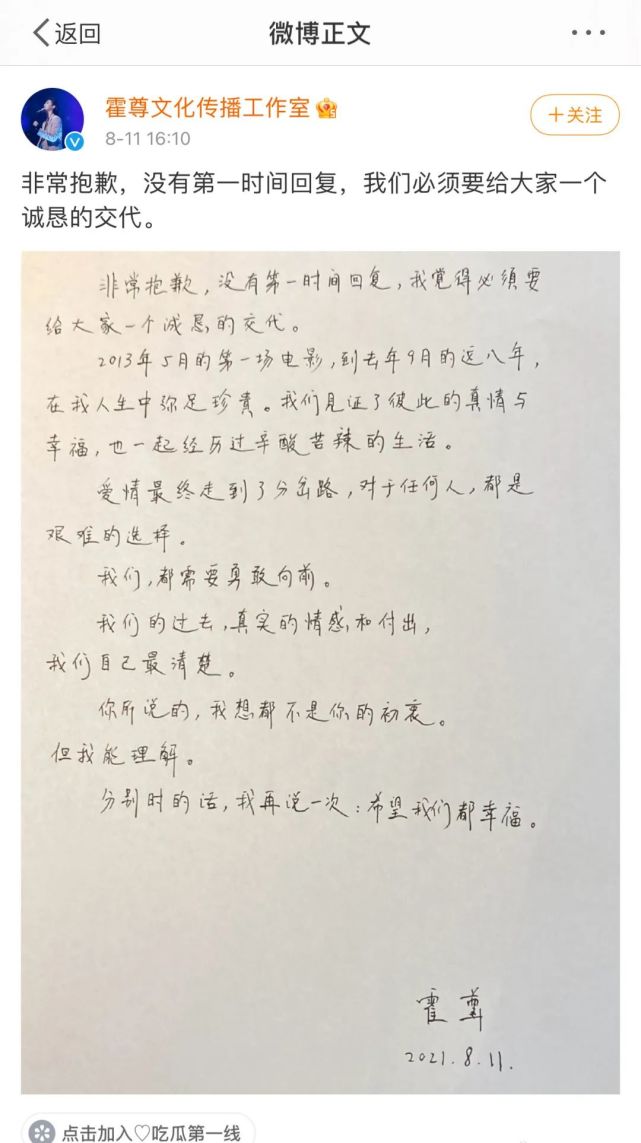 返回
微博正文
霍尊文化传播工作室
+关注
8-11 16:10
非常抱歉，没有第一时间回复，我们必须要给大家一个
诚恳的交代。
非常抱歉，没有第一时间回复，我觉得必须要
给大家一个诚恳的交代。
2013年5月的第一场电影，到去年9月的这八年，
在我人生中弥足珍贵。我们见证了彼此的真情与
幸福，也一起经历过辛酸苦辣的生活。
爱情最终走到了分岔路，对于任何人，都是
艰难的选择。
我们，都需要勇敢向前。
我们的过去，真实的情感和付出，
我们自己最清楚。
你所说的，我想都不是你的初衷。
但我能理解。
分别时的话，我再说一次：希望我们都幸福。
霍尊
2021.8.11.
点击加入♡吃瓜第一线